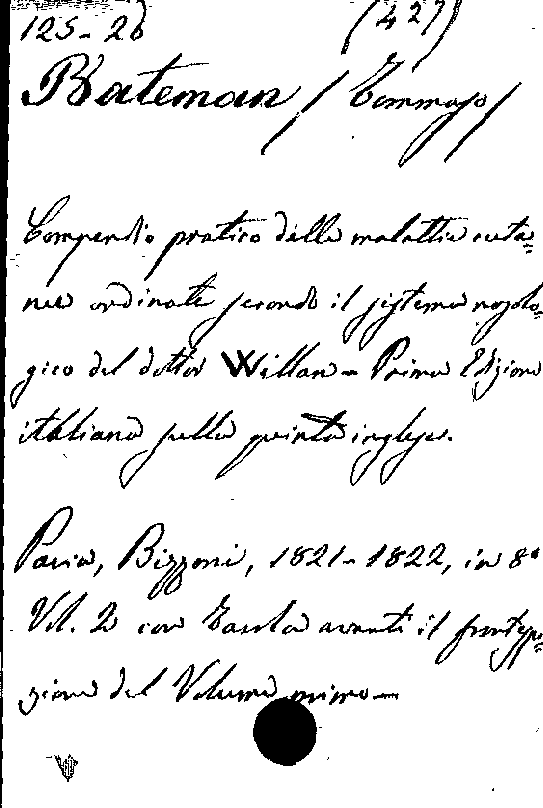 125-26 (427)
Bateman / Tommaso /
Compendio pratico delle malattie cuta=
nee ordinate secondo il sistema nosolo=
gico del dottor Willan - Prima Edizione
italiana sulla quinta inglese.
Pavia, Bizzoni, 1821-1822, in 8°
Vol. 2 con Tavola avanti il frontespi=
zione del Volume primo -